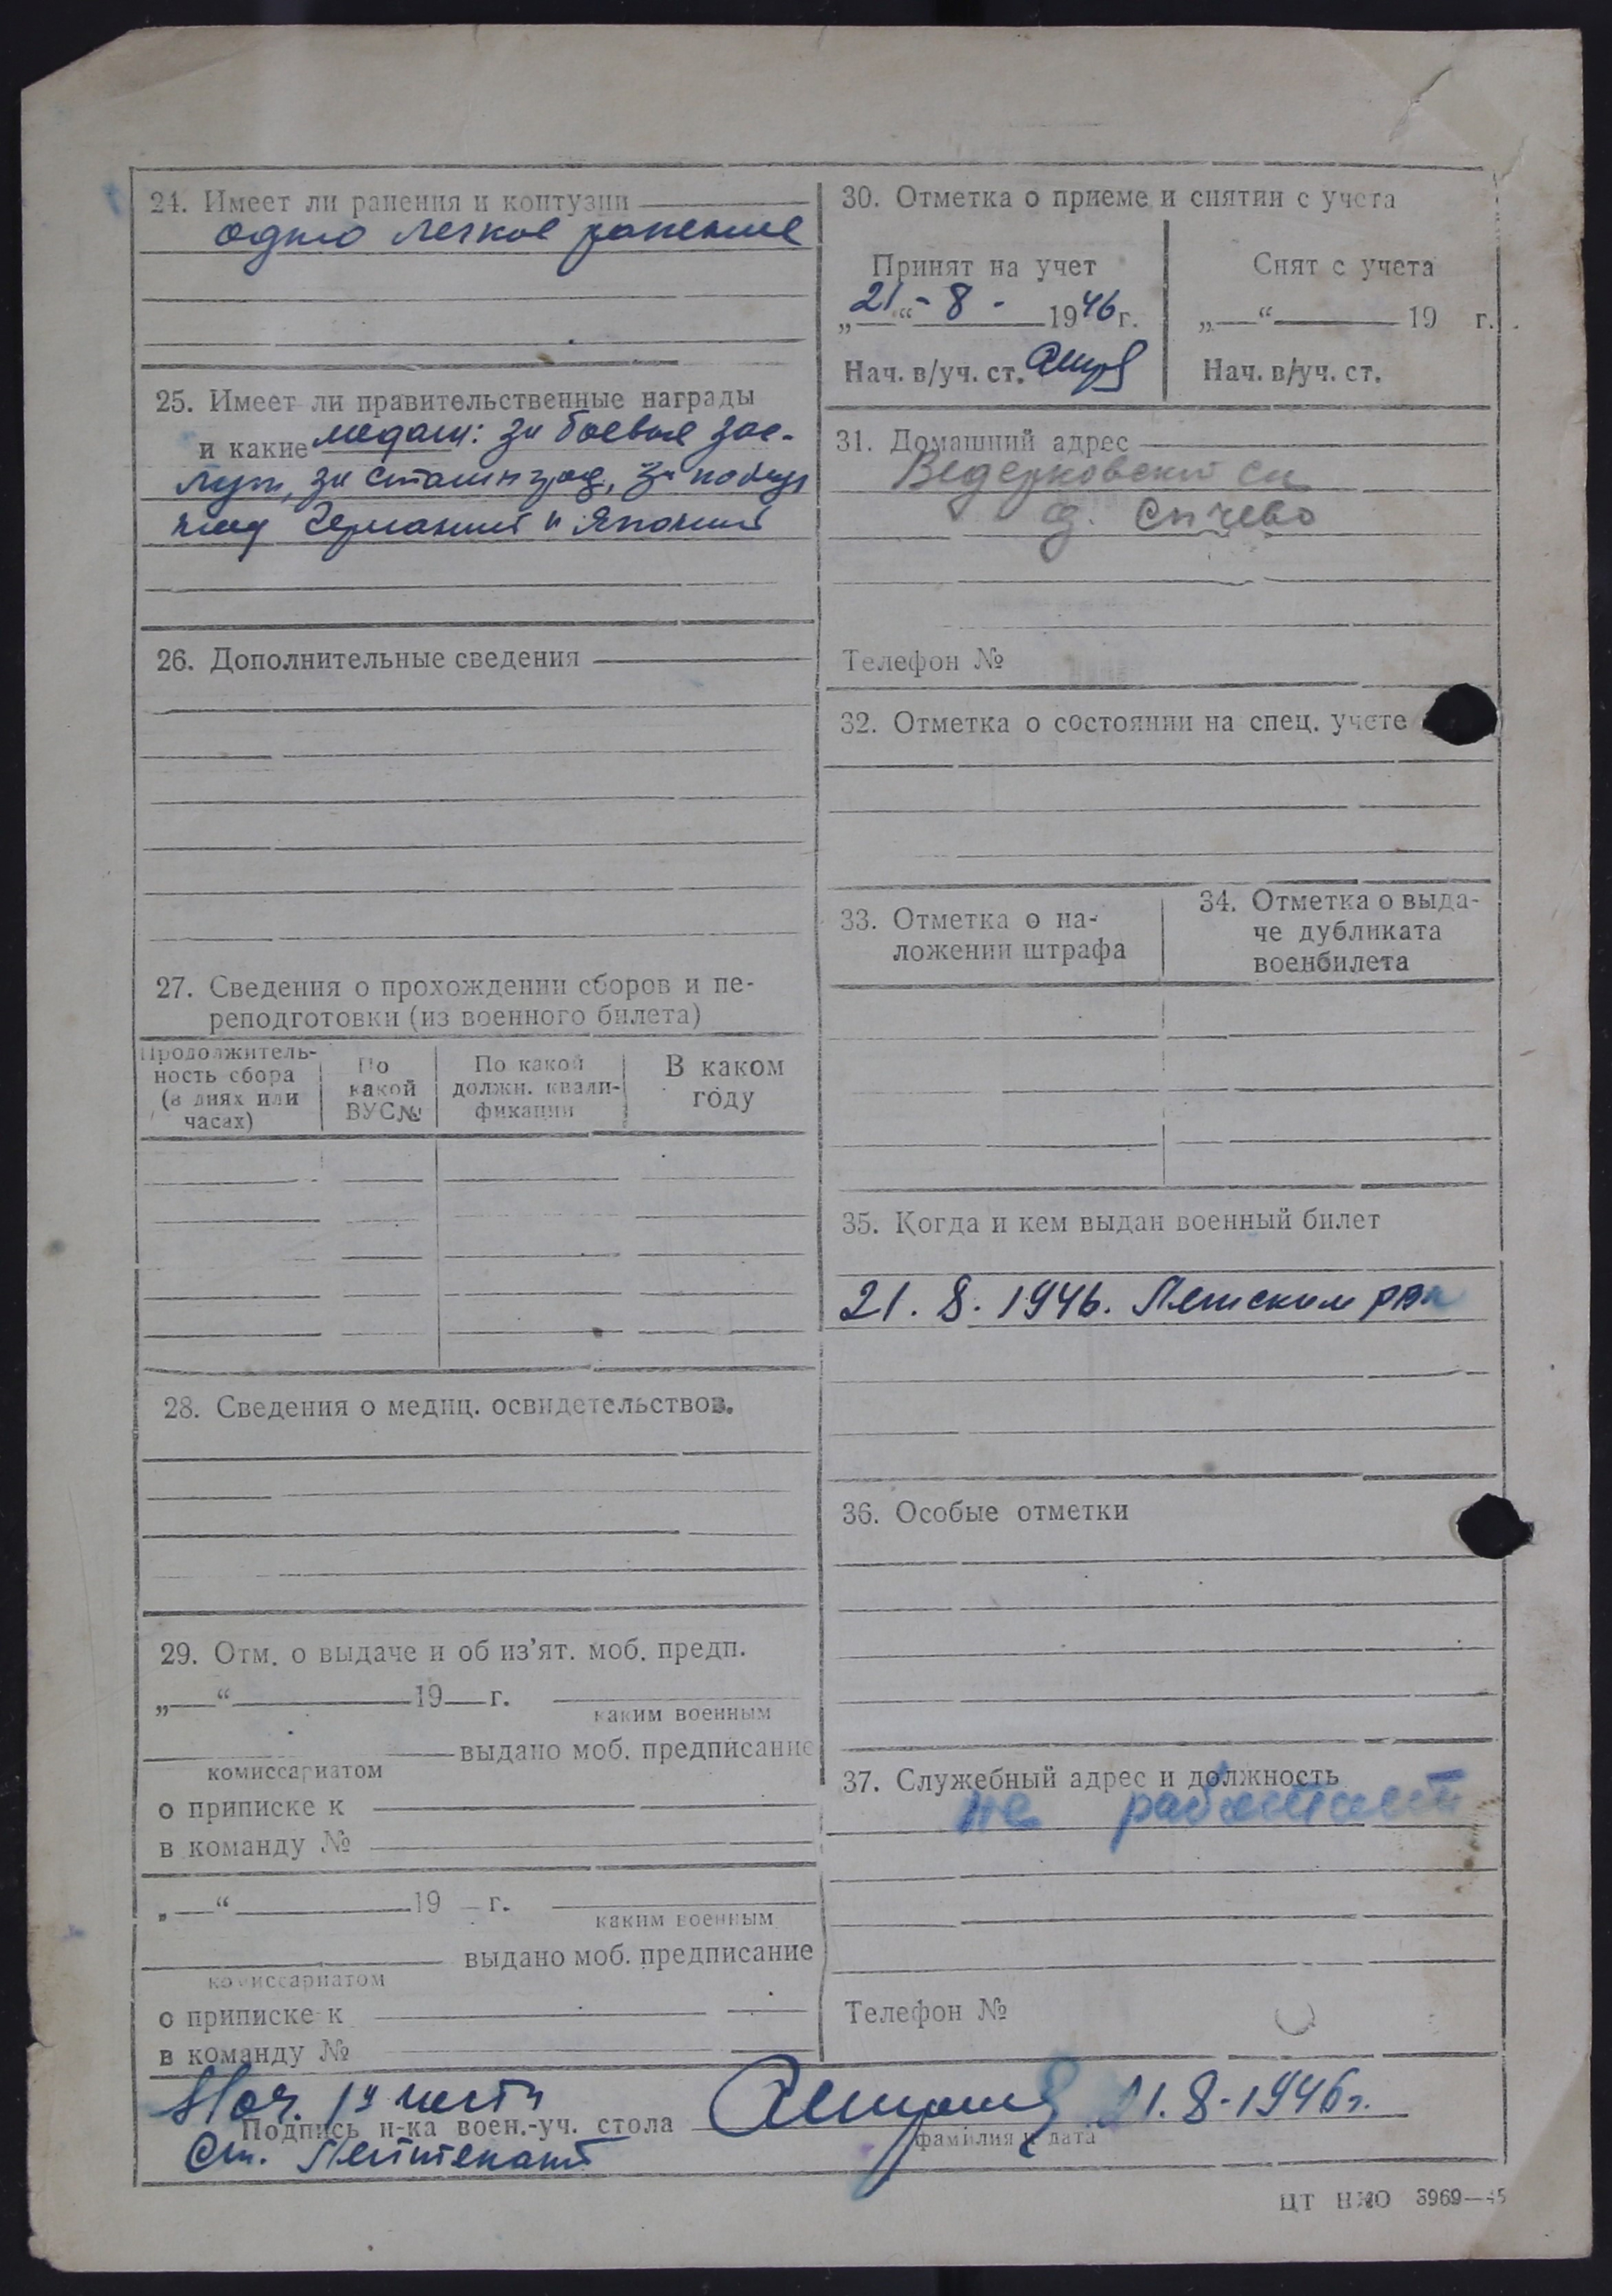 24. Имеет ли ранения и контузии
одно легкое ранение
25. Имеет ли правительственные награды
и какие медали: за боевые зас-
луги, за Сталинград, за победу
над Германией и Японией
26. Дополнительные сведения
27. Сведения о прохождении сборов и пе-
реподготовки (из военного билета)
Продолжитель-
ность сбора
(в днях или
часах)
По
какой
ВУС №
По какой
должн. квали-
фикации
В каком
году
28. Сведения о медиц. освидетельствов.
29. Отм. о выдаче и об из’ят. моб. предп.
„—“ 19 г.
каким военным
выдано моб. предписание
комиссариатом
о приписке к
в команду №
„—“ 19 г.
каким военным
выдано моб. предписание
комиссариатом
о приписке к
в команду №
30. Отметка о приеме и снятии с учета
Принят на учет
„21“ - 8 - 1946 г.
Нач. в/уч. ст.
Снят с учета
„—“ 19 г.
Нач. в/уч. ст.
31. Домашний адрес
Ведерковский с/с
д. Сычево
Телефон №
32. Отметка о состоянии на спец. учете
33. Отметка о на-
ложении штрафа
34. Отметка о выда-
че дубликата
военбилета
35. Когда и кем выдан военный билет
21. 8. 1946. РВК
36. Особые отметки
37. Служебный адрес и должность
не работает
Телефон №
Нач. 1й части
Подпись н-ка воен.-уч. стола 21. 8 - 1946 г.
фамилия и дата
Ст. Лейтенант
ЦТ НКО 3969—45